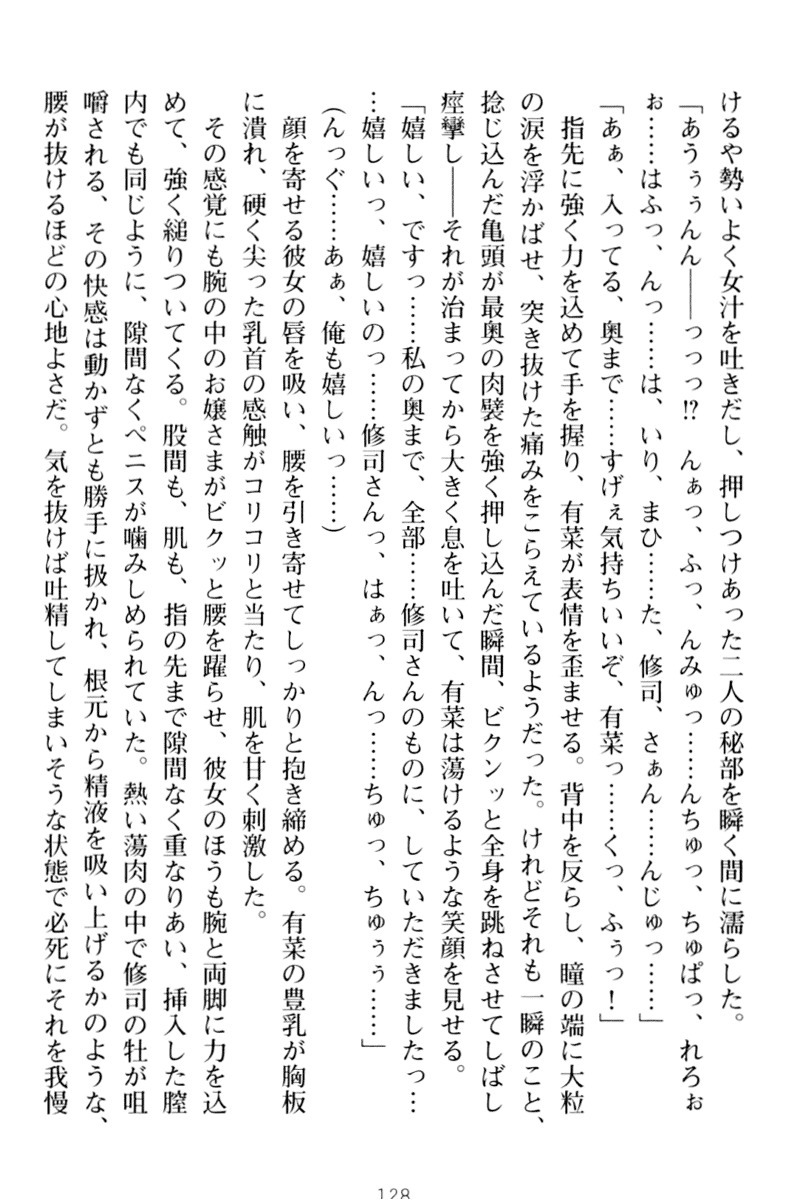 けるや勢いよく女汁を吐きだし、押しつけあった二人の秘部を瞬く間に濡らした。
「あうぅぅんん――っっっ!?　んぁっ、ふっ、んみゅっ……んちゅっ、ちゅぱっ、れろぉ
ぉ……はふっ、んっ……は、いり、まひ……た、修司、さぁん……んじゅっ……」
「あぁ、入ってる、奥まで……すげぇ気持ちいいぞ、有菜っ……くっ、ふぅっ！」
　指先に強く力を込めて手を握り、有菜が表情を歪ませる。背中を反らし、瞳の端に大粒
の涙を浮かばせ、突き抜けた痛みをこらえているようだった。けれどそれも一瞬のこと、
捻じ込んだ亀頭が最奥の肉襞を強く押し込んだ瞬間、ビクンッと全身を跳ねさせてしばし
痙攣し――それが治まってから大きく息を吐いて、有菜は蕩けるような笑顔を見せる。
「嬉しい、ですっ……私の奥まで、全部……修司さんのものに、していただきましたっ…
…嬉しいっ、嬉しいのっ……修司さんっ、はぁっ、んっ……ちゅっ、ちゅぅぅ……」
（んっぐ……あぁ、俺も嬉しいっ……）
　顔を寄せる彼女の唇を吸い、腰を引き寄せてしっかりと抱き締める。有菜の豊乳が胸板
に潰れ、硬く尖った乳首の感触がコリコリと当たり、肌を甘く刺激した。
　その感覚にも腕の中のお嬢さまがビクッと腰を躍らせ、彼女のほうも腕と両脚に力を込
めて、強く縋りついてくる。股間も、肌も、指の先まで隙間なく重なりあい、挿入した膣
内でも同じように、隙間なくペニスが噛みしめられていた。熱い蕩肉の中で修司の牡が咀
嚼される、その快感は動かずとも勝手に扱かれ、根元から精液を吸い上げるかのような、
腰が抜けるほどの心地よさだ。気を抜けば吐精してしまいそうな状態で必死にそれを我慢
128